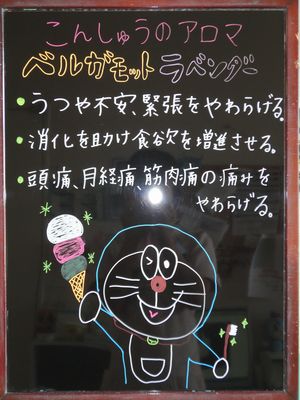 こんしゅうのアロマ
ベルガモット ラベンダー
• うつや不安、緊張をやわらげる。
• 消化を助け食欲を増進させる。
• 頭痛、月経痛、筋肉痛の痛みを
やわらげる。